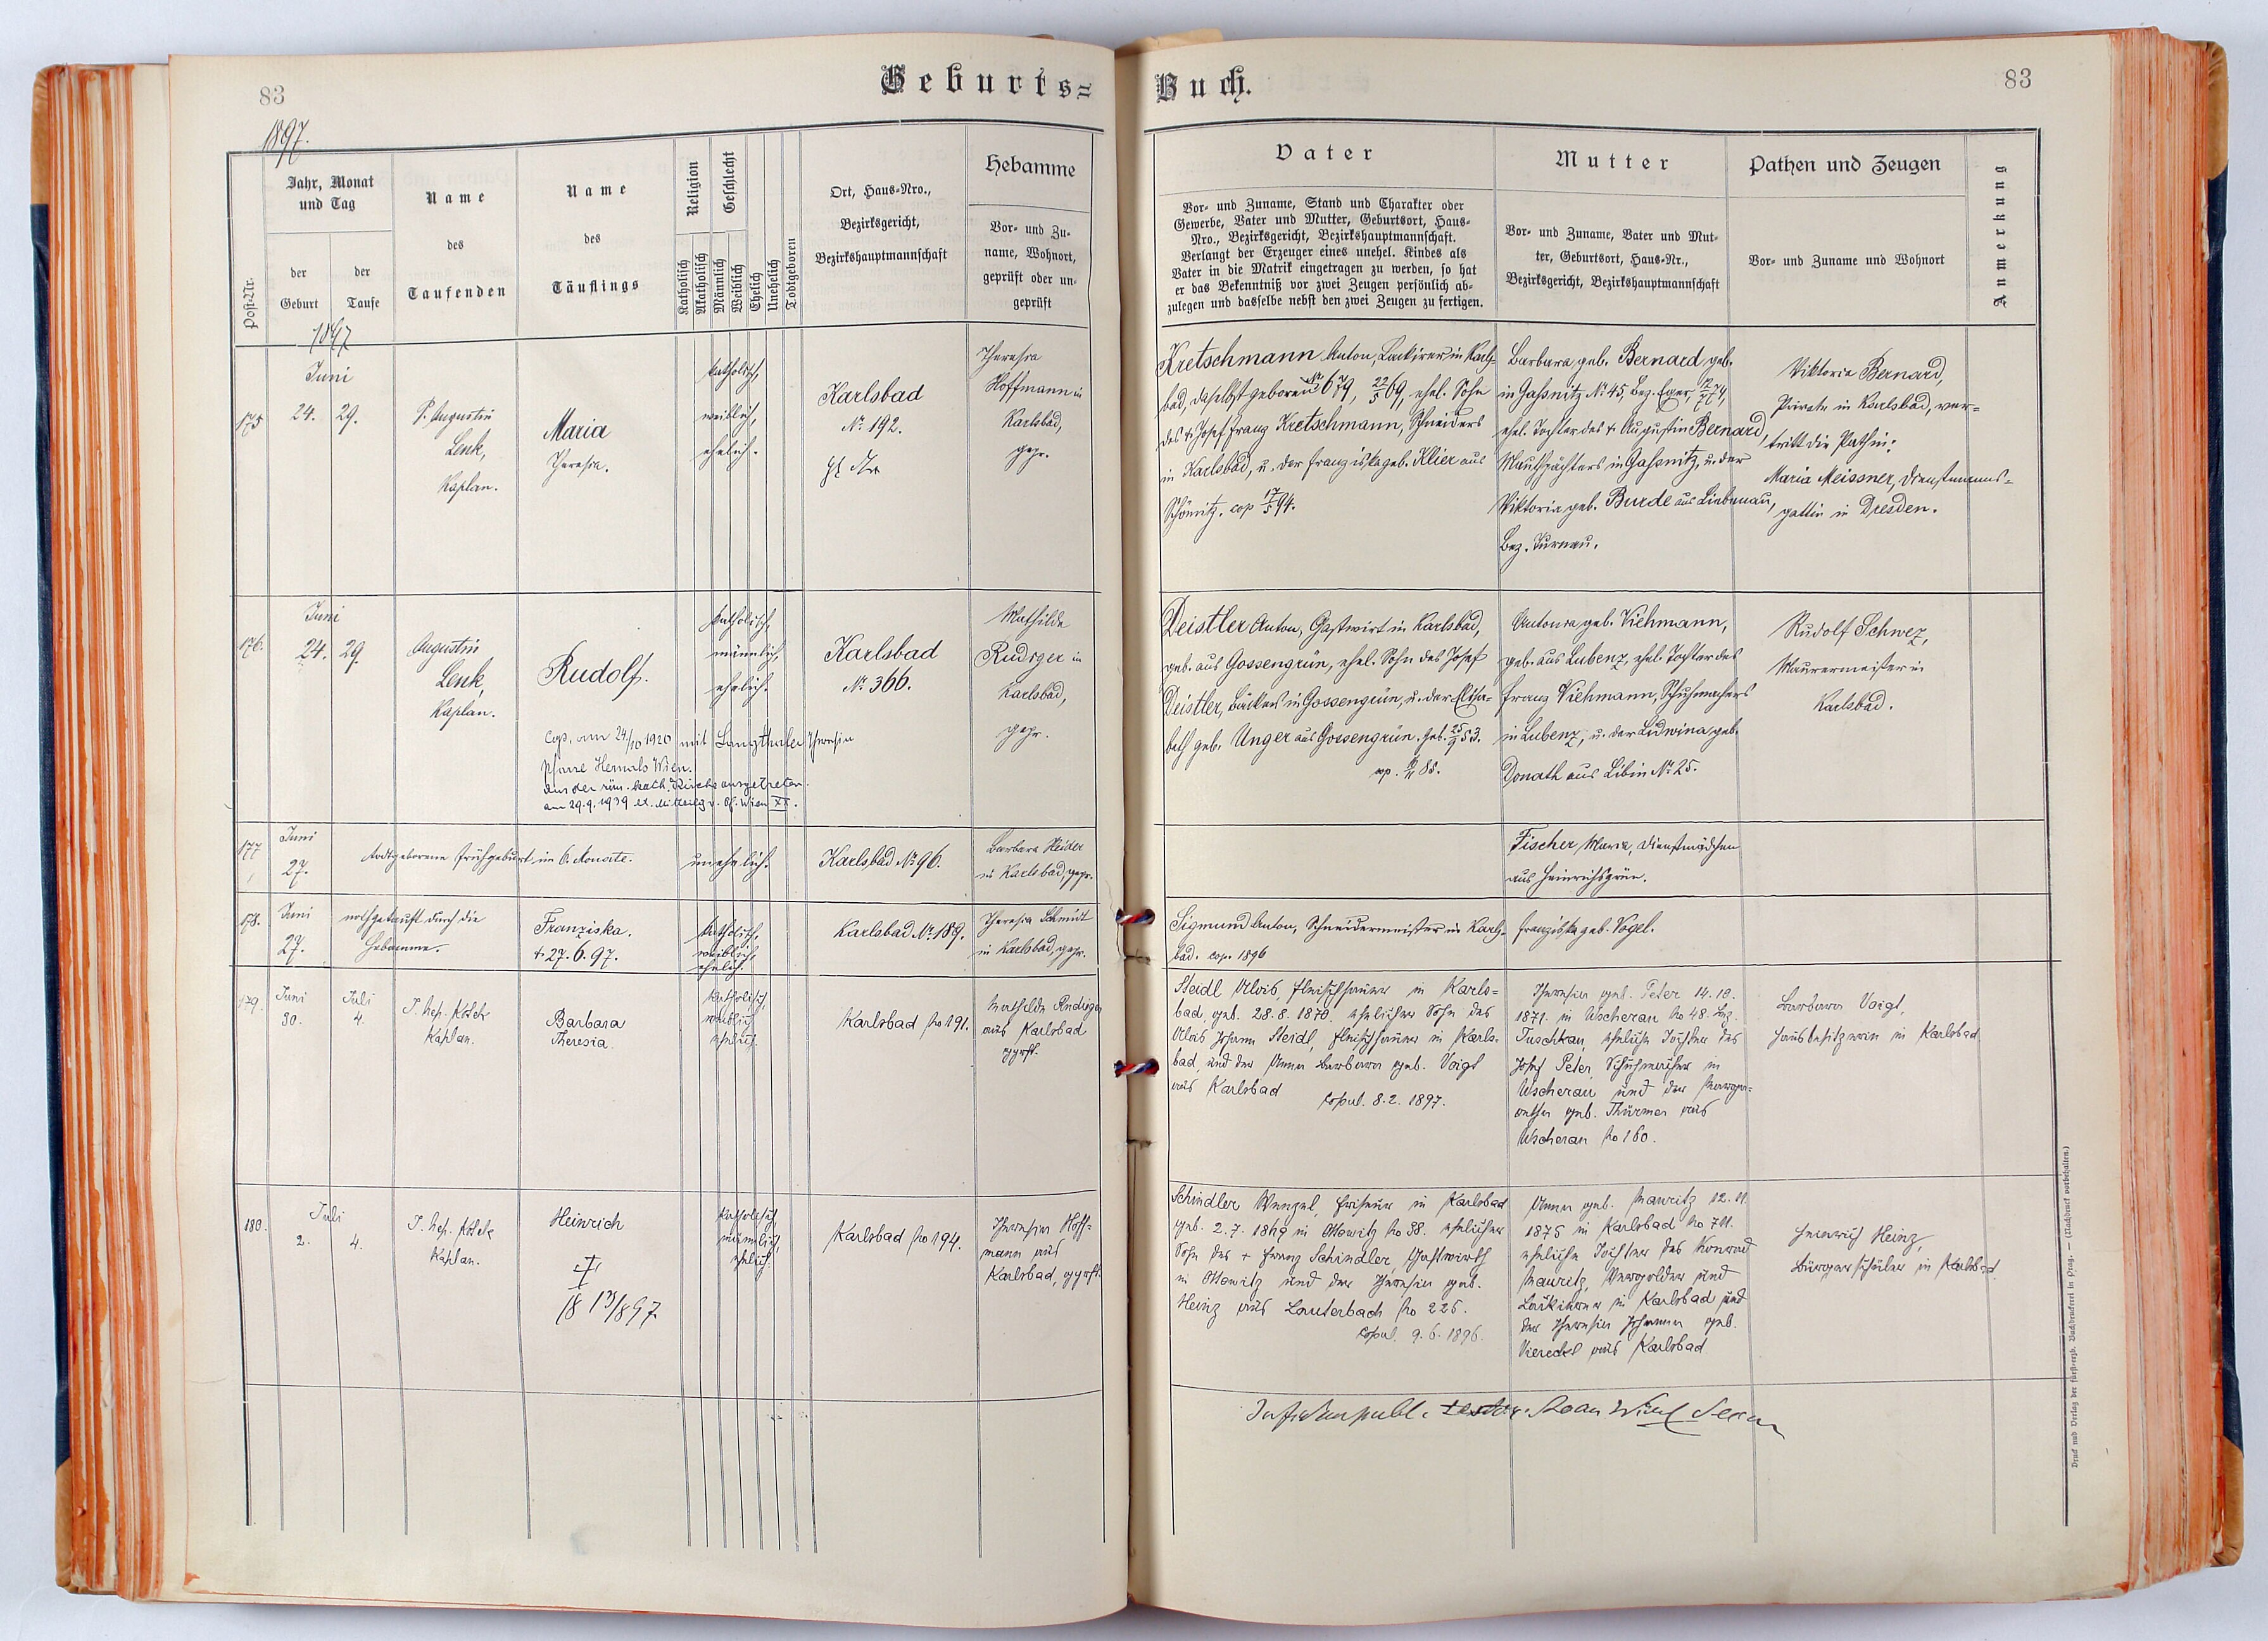 83
Geburts=
Buch.
83
1897.
Jahr, Monat
und Tag
der
Geburt
der
Taufe
Post-Nr.
Name
des
Taufenden
Name
des
Täuflings
Religion
Geschlecht
Katholisch
Akatholisch
Männlich
Weiblich
Ehelich
Unehelich
Todtgeboren
Ort, Haus-Nro.,
Bezirksgericht,
Bezirkshauptmannschaft
Hebamme
Vor- und Zu-
name, Wohnort,
geprüft oder un-
geprüft
Vater
Vor- und Zuname, Stand und Charakter oder
Gewerbe, Vater und Mutter, Geburtsort, Haus-
Nro., Bezirksgericht, Bezirkshauptmannschaft.
Verlangt der Erzeuger eines unehel. Kindes als
Vater in die Matrik eingetragen zu werden, so hat
er das Bekenntniß vor zwei Zeugen persönlich ab-
zulegen und dasselbe nebst den zwei Zeugen zu fertigen.
Mutter
Vor- und Zuname, Vater und Mut-
ter, Geburtsort, Haus-Nr.,
Bezirksgericht, Bezirkshauptmannschaft
Pathen und Zeugen
Vor- und Zuname und Wohnort
Anmerkung
1897
175
Juni
24. 29.
P. Augustin
Lenk,
Kaplan.
Maria
Theresia.
katholisch,
weiblich,
ehelich.
Karlsbad
No 192.
Theresia
Hoffmann in
Karlsbad,
gepr.
Kretschmann Anton, Lackirer in Karls-
bad, daselbst geboren No 679, 22/5 69, ehel. Sohn
des + Josef Franz Kretschmann, Schneiders
in Karlsbad, u. der Franziska geb. Klier aus
Schömitz. cop 17/5 94.
Barbara geb. Bernard geb.
in Gaßnitz No 45, Bez. Eger, 74,
ehel. Tochter des + Augustin Bernard,
Mauthpächters in Gaßnitz, u. der
Viktoria geb. Burde aus Liebenau,
Bez. Turnau.
Viktoria Bernard,
Private in Karlsbad, ver-
tritt die Pathin:
Maria Meissner, Dienstmanns-
gattin in Dresden.
176.
Juni
24. 29.
Augustin
Lenk,
Kaplan.
Rudolf.
katholisch,
männlich,
ehelich.
Karlsbad
No 366.
Mathilde
Rudiger in
Karlsbad,
gepr.
Cop. am 24./10 1920 mit Langthaler Theresia
Pfarre Hernals Wien.
Aus der röm.-kath. Kirche ausgetreten
am 29.9.1939 lt. Mitteilg v. Wien XX.
Deistler Anton, Gastwirt in Karlsbad,
geb. aus Gossengrün, ehel. Sohn des Josef
Deistler, Bäckers in Gossengrün, u. der Elisa-
beth geb. Unger aus Gossengrün. geb. 25/9 53.
cop. 88.
Antonia geb. Viehmann,
geb. aus Lubenz, ehel. Tochter des
Franz Viehmann, Schuhmachers
in Lubenz, u. der Ludwina geb.
Donath aus Libin No 25.
Rudolf Schwez,
Maurermeister in
Karlsbad.
177
Juni
27.
todtgeborene Frühgeburt im 6. Monate.
unehelich.
Karlsbad No 96.
Barbara Heider
in Karlsbad, gepr.
Fischer Maria, Dienstmädchen
aus Heinrichsgrün.
178.
Juni
27.
nothgetauft durch die
Hebamme.
Franziska.
+ 27.6.97.
katholisch,
weiblich,
ehelich.
Karlsbad No 189.
Theresia Schmidt
in Karlsbad, gepr.
Sigmund Anton, Schneidermeister in Karls-
bad. cop. 1896
Franziska geb. Vogel.
179.
Juni
30.
Juli
4.
Kaplan.
Barbara
Theresia.
katholisch,
weiblich,
ehelich.
Karlsbad No 191.
Mathilde Rudiger
aus Karlsbad
geprft.
Steidl Alois, Fleischhauer in Karls=
bad, geb. 28.8.1870. ehelicher Sohn des
Alois Johann Steidl, Fleischhauer in Karls-
bad, und der Anna Barbara geb. Voigt
aus Karlsbad
Copul. 8.2.1897.
Theresia geb. Peter 14.10.
1871. in Uscherau No 48. Bez.
Tuschkau, eheliche Tochter des
Josef Peter, Schuhmacher in
Uscherau und der Marga-
retha geb. Thürmer aus
Uscherau No 160.
Barbara Voigt,
Hausbesitzerin in Karlsbad
180.
Juli
2. 4.
Kaplan.
Heinrich
katholisch,
männlich,
ehelich.
Karlsbad No 194.
Theresia Hoff=
mann aus
Karlsbad, geprft.
Schindler Wenzel, Friseur in Karlsbad
geb. 2.7.1869 in Ottowitz No 38. ehelicher
Sohn des + Franz Schindler, Gastwirth
in Ottowitz und der Theresia geb.
Heinz aus Lauterbach No 225.
Copul. 9.6.1896.
Anna geb. Mauritz 12.11.
1875 in Karlsbad No 711.
eheliche Tochter des Konrad
Mauritz, Vergolder und
Lackirer in Karlsbad und
der Theresia Johanna geb.
Viereckl aus Karlsbad
Heinrich Heinz,
Bürgerschüler in Karlsbad.
Druck und Verlag der fürst-erzb. Buchdruckerei in Prag. — (Nachdruck vorbehalten.)